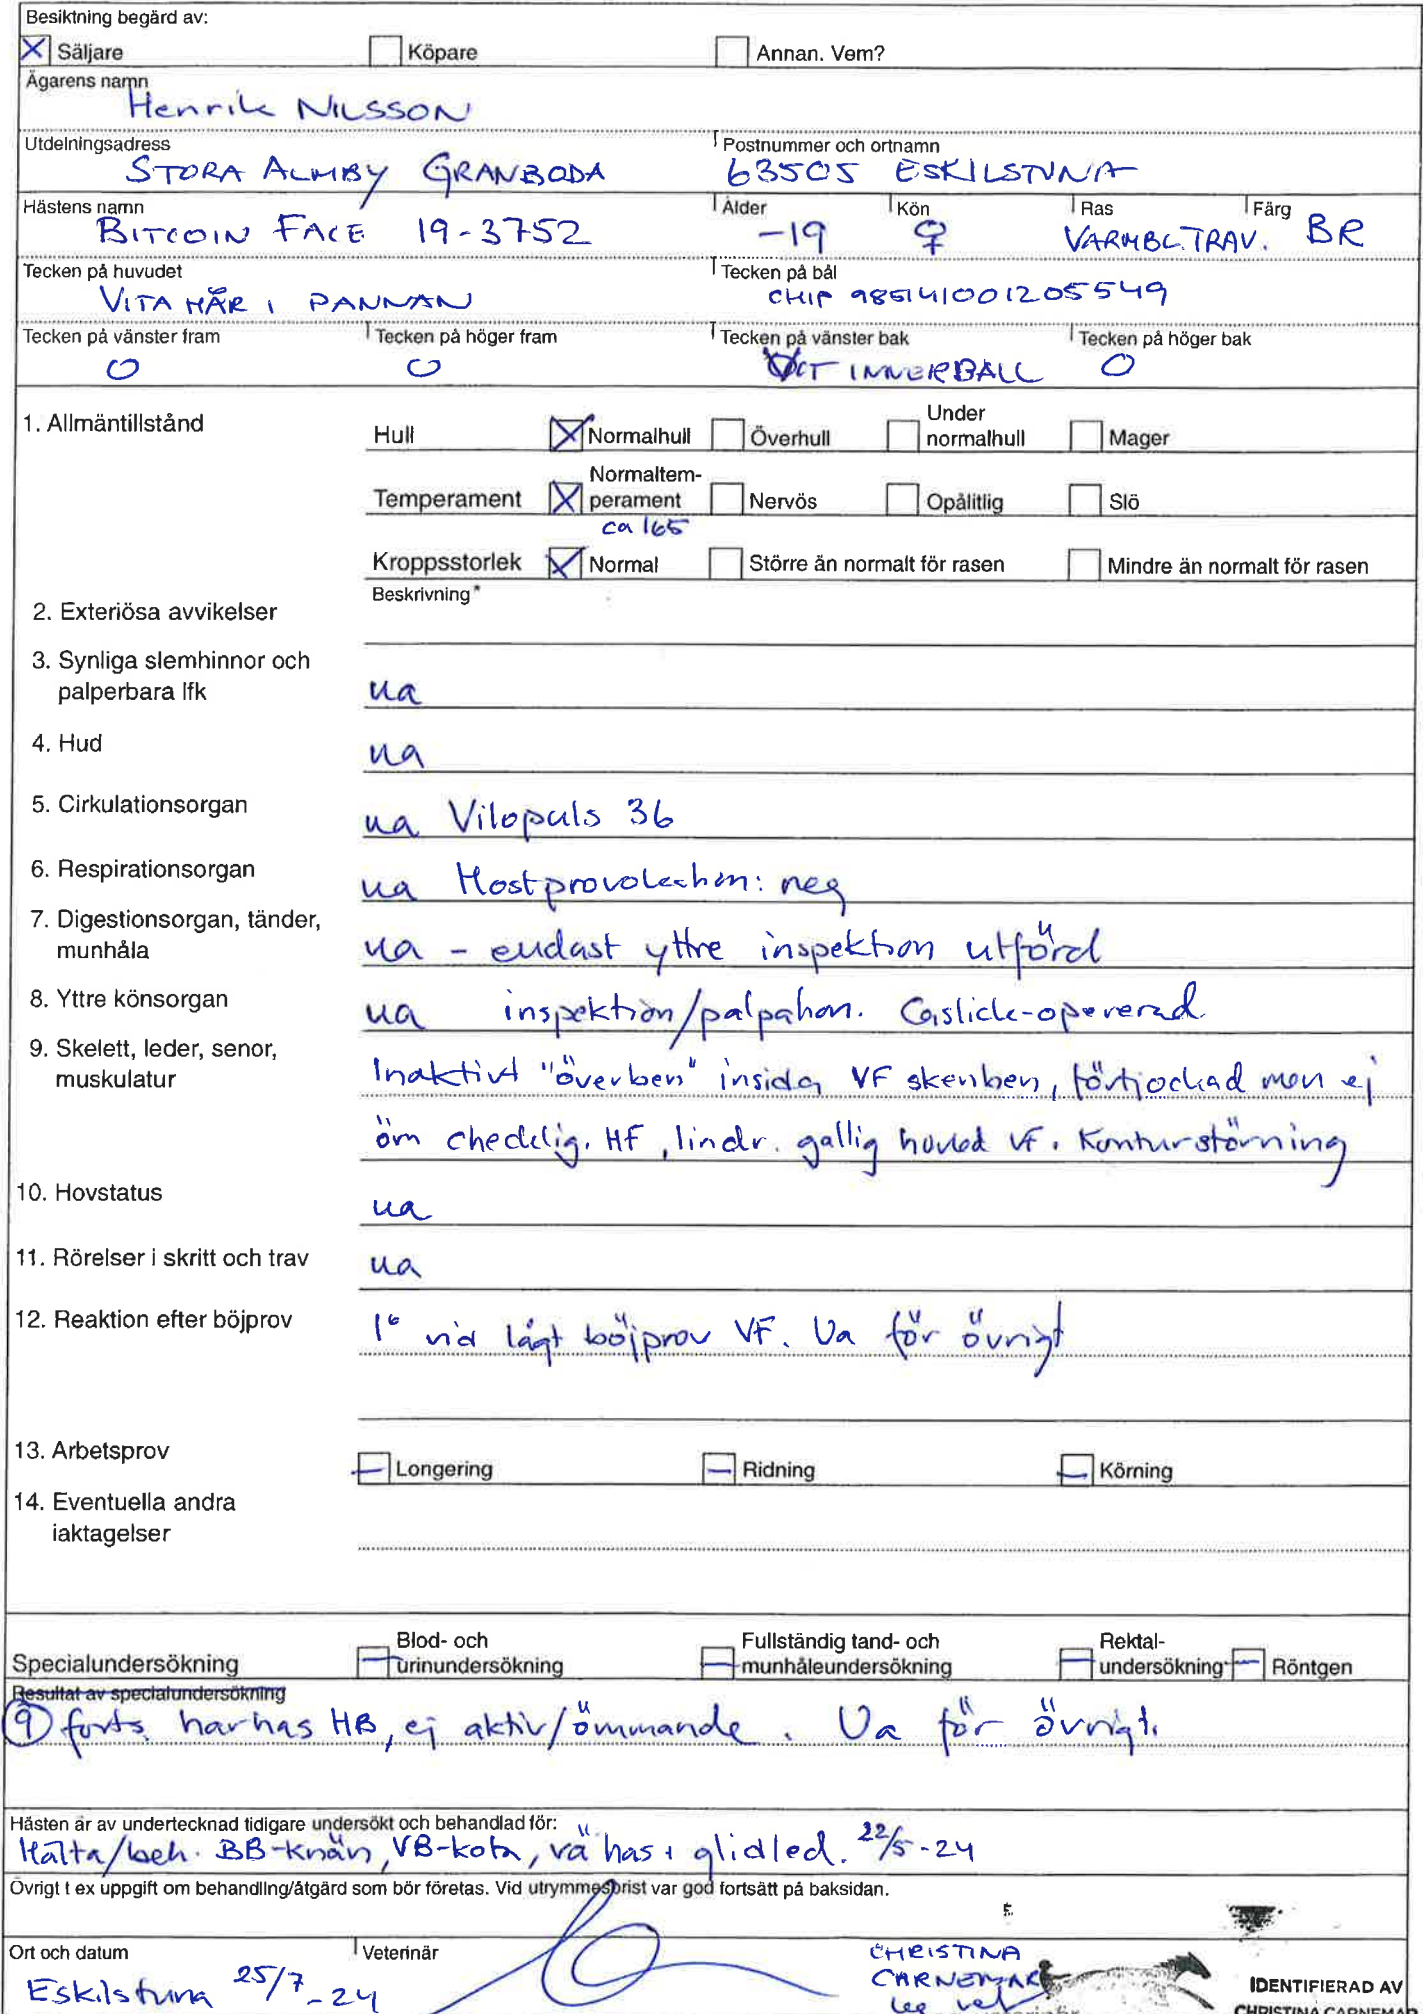 Besiktning begärd av:
Säljare Köpare Annan. Vem?
Ägarens namn
Henrik NILSSON
Utdelningsadress Postnummer och ortnamn
STORA ALMBY GRANBODA 63505 ESKILSTUNA
Hästens namn Ålder Kön Ras Färg
BITCOIN FACE 19-3752 -19 ♀ VARMBL.TRAV. BR
Tecken på huvudet Tecken på bål
VITA HÅR I PANNAN CHIP 985141001205549
Tecken på vänster fram Tecken på höger fram Tecken på vänster bak Tecken på höger bak
O O INNERBALL O
1. Allmäntillstånd
Hull Normalhull Överhull Under normalhull Mager
Temperament Normaltem-perament Nervös Opålitlig Slö
ca 165
Kroppsstorlek Normal Större än normalt för rasen Mindre än normalt för rasen
Beskrivning*
2. Exteriösa avvikelser
3. Synliga slemhinnor och
palperbara lfk ua
4. Hud ua
5. Cirkulationsorgan ua Vilopuls 36
6. Respirationsorgan ua Hostprovokation: neg
7. Digestionsorgan, tänder,
munhåla ua - endast yttre inspektion utförd
8. Yttre könsorgan ua inspektion/palpation. Caslick-opererad.
9. Skelett, leder, senor,
muskulatur Inaktivt "överben" insida VF skenben, förtjockad men ej
öm HF, lindr. gallig hovled VF. Konturstörning
10. Hovstatus ua
11. Rörelser i skritt och trav ua
12. Reaktion efter böjprov 1° vid lågt böjprov VF. Ua för övrigt
13. Arbetsprov Longering Ridning Körning
14. Eventuella andra
iaktagelser
Specialundersökning Blod- och urinundersökning Fullständig tand- och munhåleundersökning Rektal-undersökning Röntgen
Resultat av specialundersökning
9 forts. harhas HB, ej aktiv/ömmande. Ua för övrigt.
Hästen är av undertecknad tidigare undersökt och behandlad för:
Hälta/beh. BB-knän, VB-kota, vä has i glidled. 22/5-24
Övrigt t ex uppgift om behandling/åtgärd som bör företas. Vid utrymmesbrist var god fortsätt på baksidan.
Ort och datum Veterinär
Eskilstuna 25/7-24
CHRISTINA
CARNEMAR
leg vet
IDENTIFIERAD AV
CHRISTINA CARNEMAR